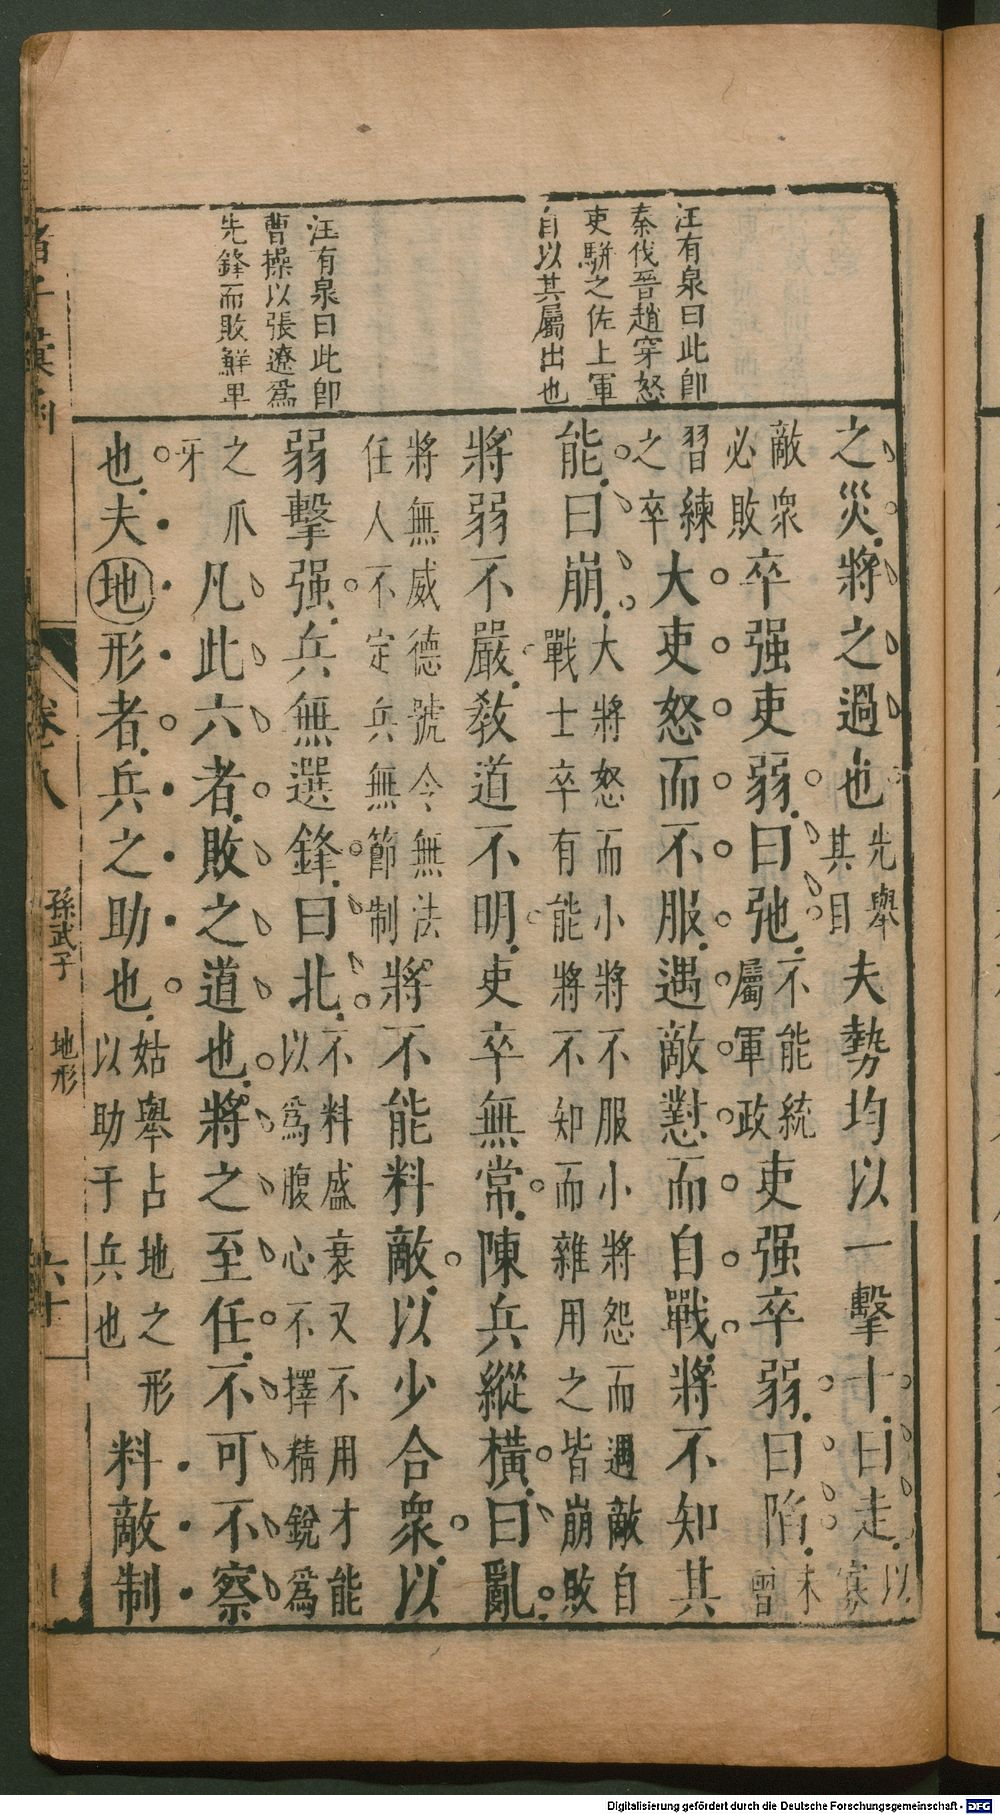 汪有泉曰此卽
秦伐晉趙穿怒
吏駢之佐上軍
自以其屬出也
汪有泉曰此卽
曹操以張遼爲
先鋒而敗鮮卑
之災將之過也先舉其目夫勢均以一擊十曰走以寡
敵衆必敗卒强吏弱曰弛不能統屬軍政吏强卒弱曰陷未曾
習練之卒大吏怒而不服遇敵懟而自戰將不知其
能曰崩大將怒而小將不服小將怨而遇敵自戰士卒有能將不知而雜用之皆崩敗
將弱不嚴教道不明吏卒無常陳兵縱橫曰亂
將無威德號令無法任人不定兵無節制將不能料敵以少合衆以
弱擊强兵無選鋒曰北不料盛衰又不用才能以爲腹心不擇精銳爲
之爪牙凡此六者敗之道也將之至任不可不察
也夫地形者兵之助也姑舉占地之形以助于兵也料敵制
諸子彙函 卷八 孫武子 地形 六十
Digitalisierung gefördert durch die Deutsche Forschungsgemeinschaft - DFG